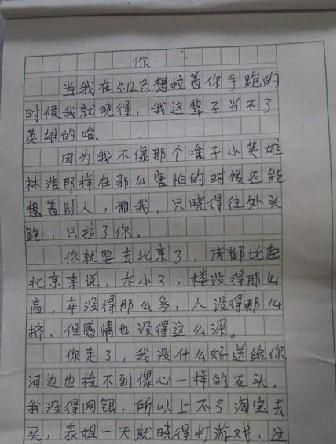 你
当我在512只想拉着你手跑的
时候我就晓得，我这辈子当不了
英雄的哈。
因为我不像那个啥子小英雄
林浩那样在那么害怕的时候还能
想着别人，而我，只晓得往外头
跑，只拉了你。
你就要去北京了，成都比起
北京来说，太小了，楼没得那么
高，车没得那么多，人没得那么
挤，但感情也没得这么深。
你走了，我没什么好送给你
河边也捡不到像心一样的石头。
我没得网银，所以上不了淘宝去
买，表姐一天就晓得打游戏，这